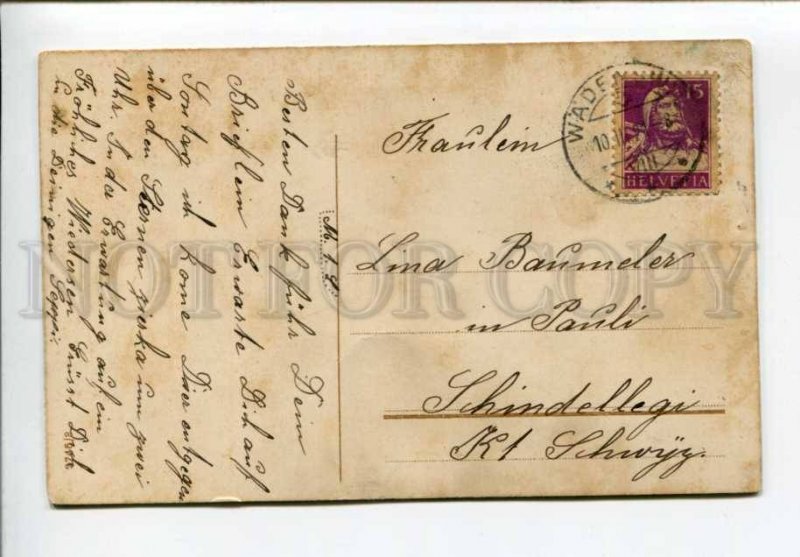 M. 1. L.
Besten Dank führ Dein
Brieflein Erwarte Dich auf
Sontag ich kome Dier entgegen
über den Sternen zirka um zwei
Uhr. In der Erwartung auf ein
Fröhliches Wiedasen Grüsst Dich
in die Deinigen Seppi.
WÄDENSWIL
15
HELVETIA
Fraulein
Lina Baumeler
in Pauli
Schindellegi
Kt Schwyz.
NOT FOR COPY